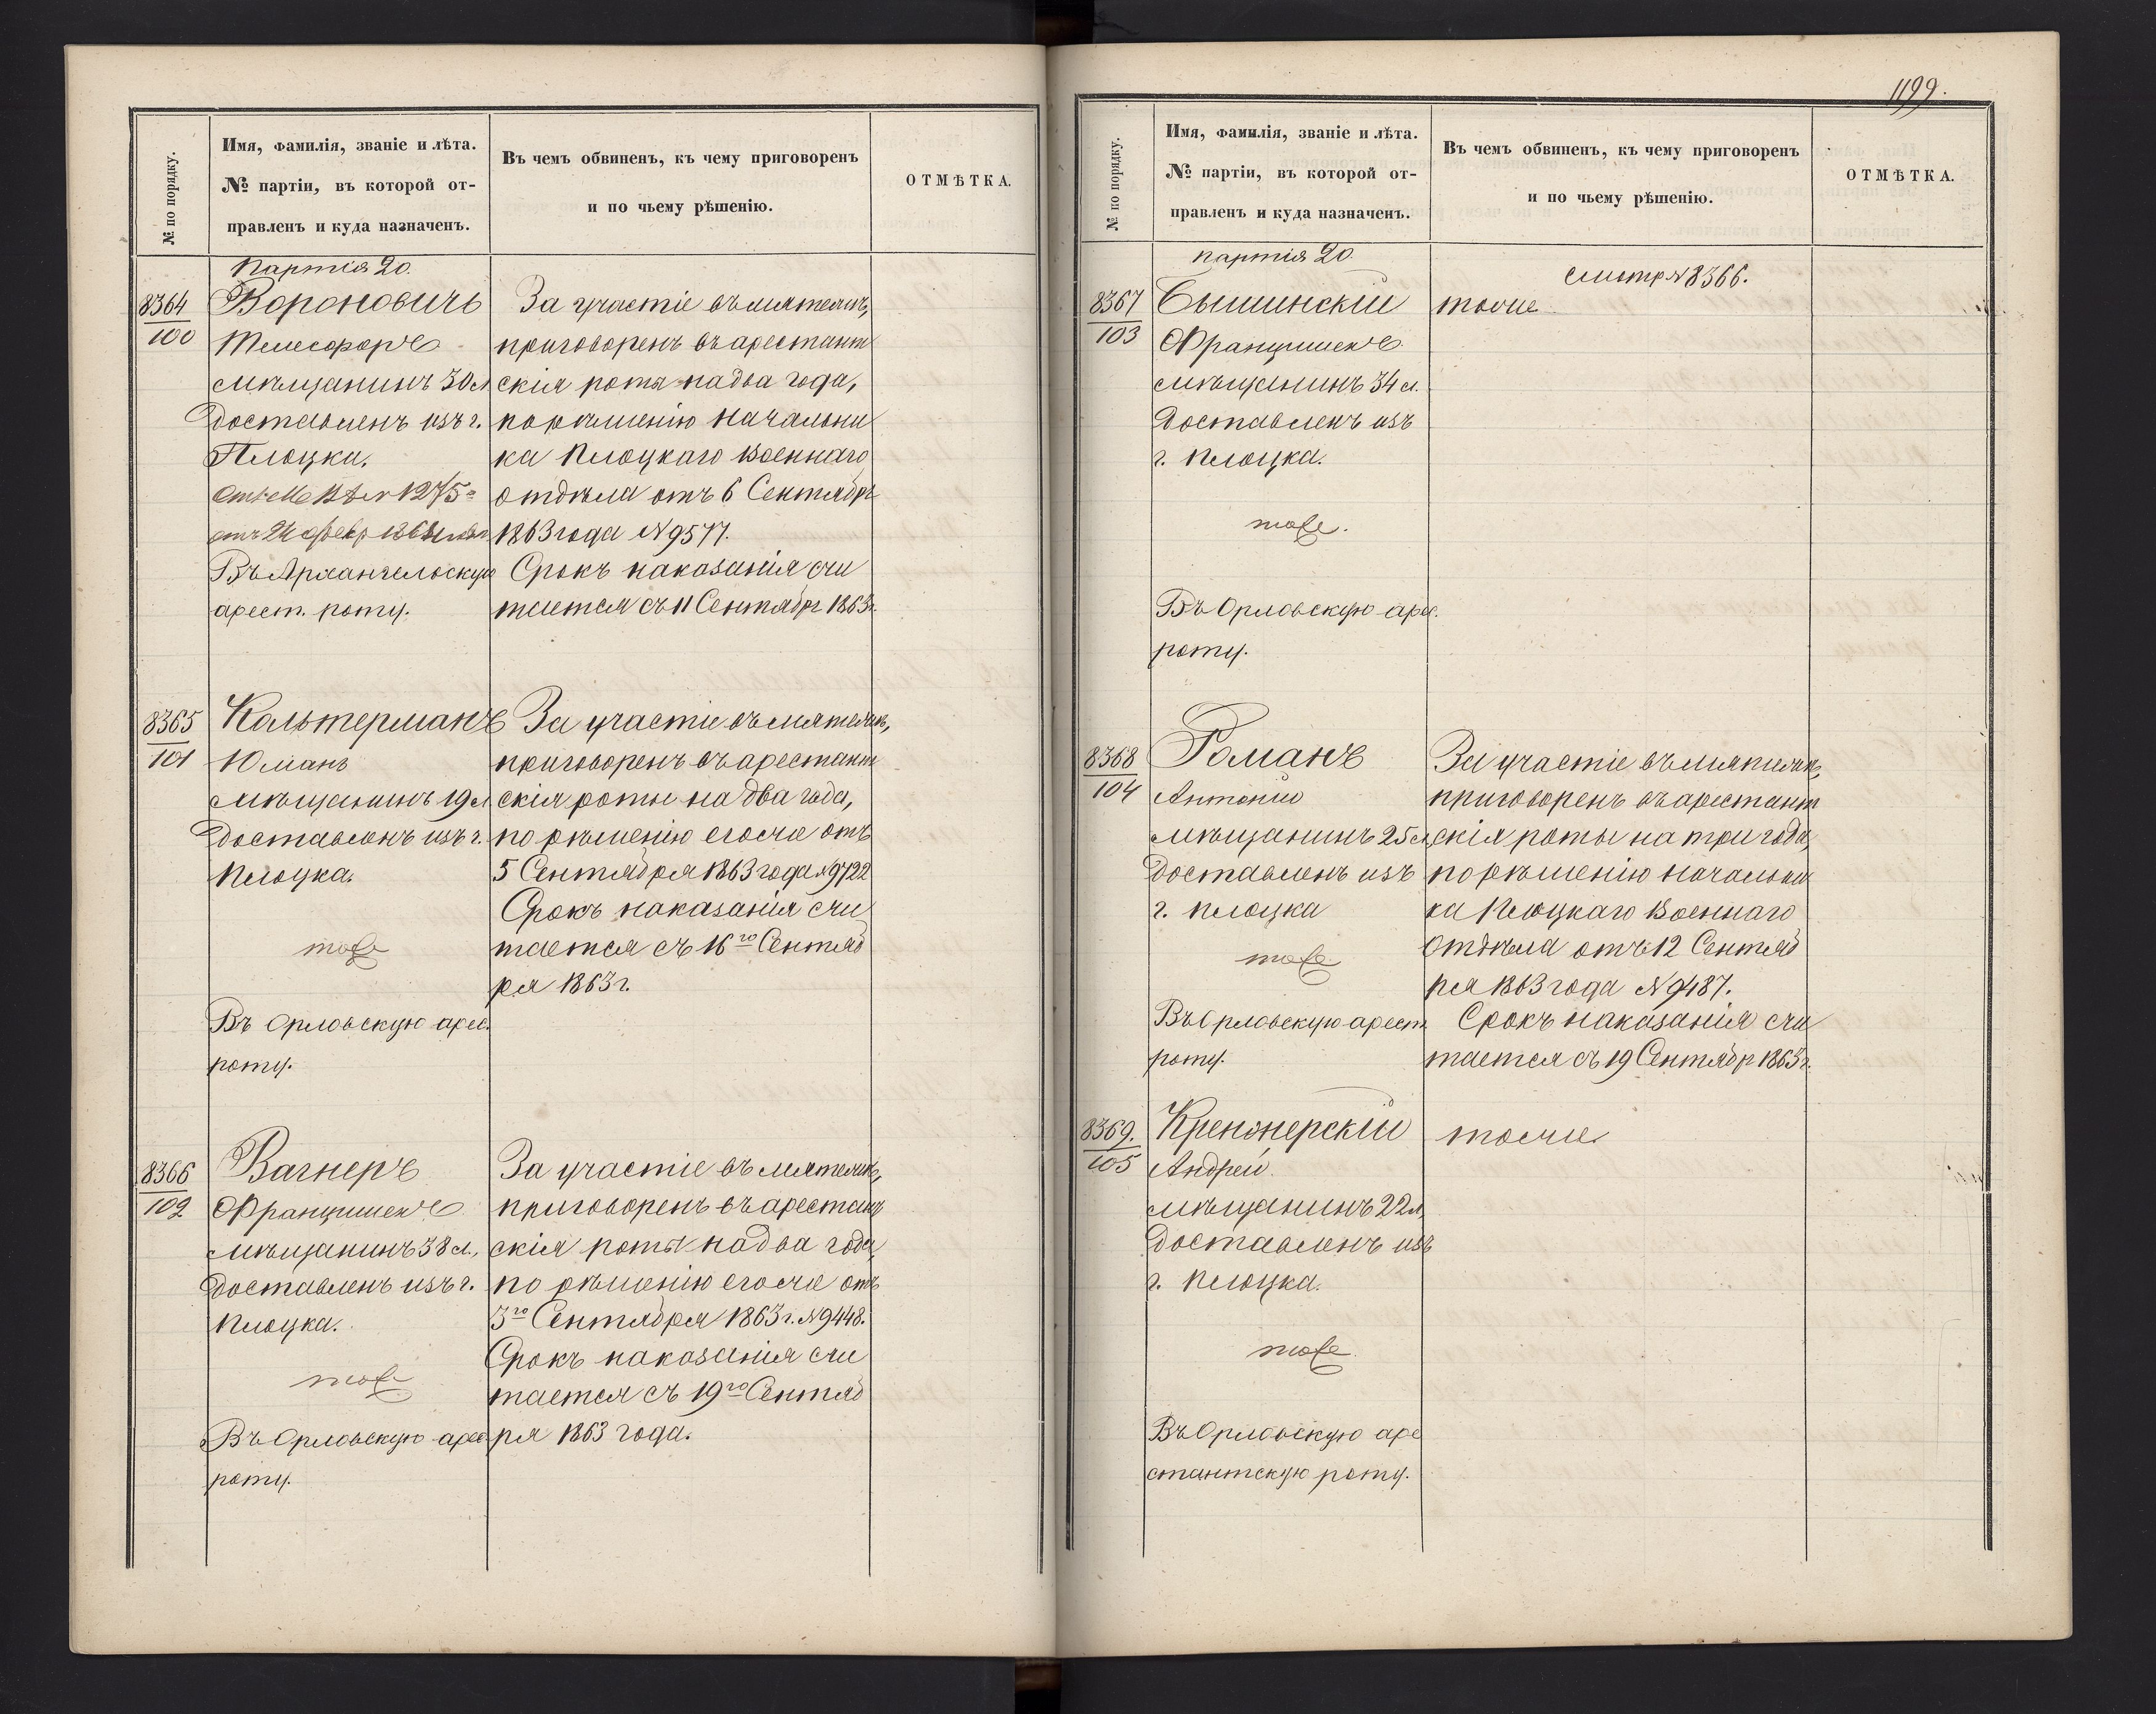 № по порядку.
Имя, фамилія, званіе и лѣта.
№ партіи, въ которой от-
правленъ и куда назначенъ.
Въ чемъ обвиненъ, къ чему приговоренъ
и по чьему рѣшенію.
ОТМѢТКА.
Партія 20.
8364
100
Вороновичъ
Телесфоръ
мѣщанинъ 30 л
доставленъ изъ г.
Плоцка.
отъ 24 февр
Въ Архангельскую
арест. роту.
За участіе въ мятежѣ,
приговоренъ въ арестант
скія роты на два года,
по рѣшенію Начальни
ка Плоцкаго Военнаго
отдѣла отъ 6 Сентябр
1863 года № 9577.
Срокъ наказанія счи
тается съ 11 Сентябр 1863 г.
8365
101
Кольтерманъ
Юліанъ
мѣщанинъ 19 л
доставленъ изъ г.
Плоцка.
тоже
Въ Орловскую арес.
роту.
За участіе въ мятежѣ,
приговоренъ въ арестант
скія роты на два года,
по рѣшенію егоже отъ
5 Сентября 1863 года № 9722
Срокъ наказанія счи
тается съ 16го Сентяб
ря 1863 г.
8366
102
Вагнеръ
Францишекъ
мѣщанинъ 38 л.,
доставленъ изъ г.
Плоцка.
тоже
Въ Орловскую арес
роту.
За участіе въ мятежѣ,
приговоренъ въ арестант
скія роты на два года,
по рѣшенію егоже отъ
3го Сентября 1863 г. № 9448.
Срокъ наказанія счи
тается съ 19го Сентяб
ря 1863 года.
1199.
№ по порядку.
Имя, фамилія, званіе и лѣта.
№ партіи, въ которой от-
правленъ и куда назначенъ.
Въ чемъ обвиненъ, къ чему приговоренъ
и по чьему рѣшенію.
ОТМѢТКА.
партія 20
8367
103
Бышинскій
Францишекъ
мѣщанинъ 34 л.
доставленъ изъ
г. Плоцка.
тоже.
Въ Орловскую арес.
роту.
смотр № 8366.
тоже
8368
104
Романъ
Антоній
мѣщанинъ 25 л,
доставленъ изъ
г. Плоцка
тоже
Въ Орловскую арест
роту.
За участіе въ мятежѣ,
приговоренъ въ арестант
скія роты на три года,
по рѣшенію Начальни
ка Плоцкаго Военнаго
Отдѣла отъ 12 Сентяб
ря 1863 года № 9487.
Срокъ наказанія счи
тается съ 19 Сентябр 1863 г.
8369.
105
Андрей.
мѣщанинъ 22 л,
доставленъ изъ
г. Плоцка.
тоже.
Въ Орловскую аре
стантскую роту.
тоже